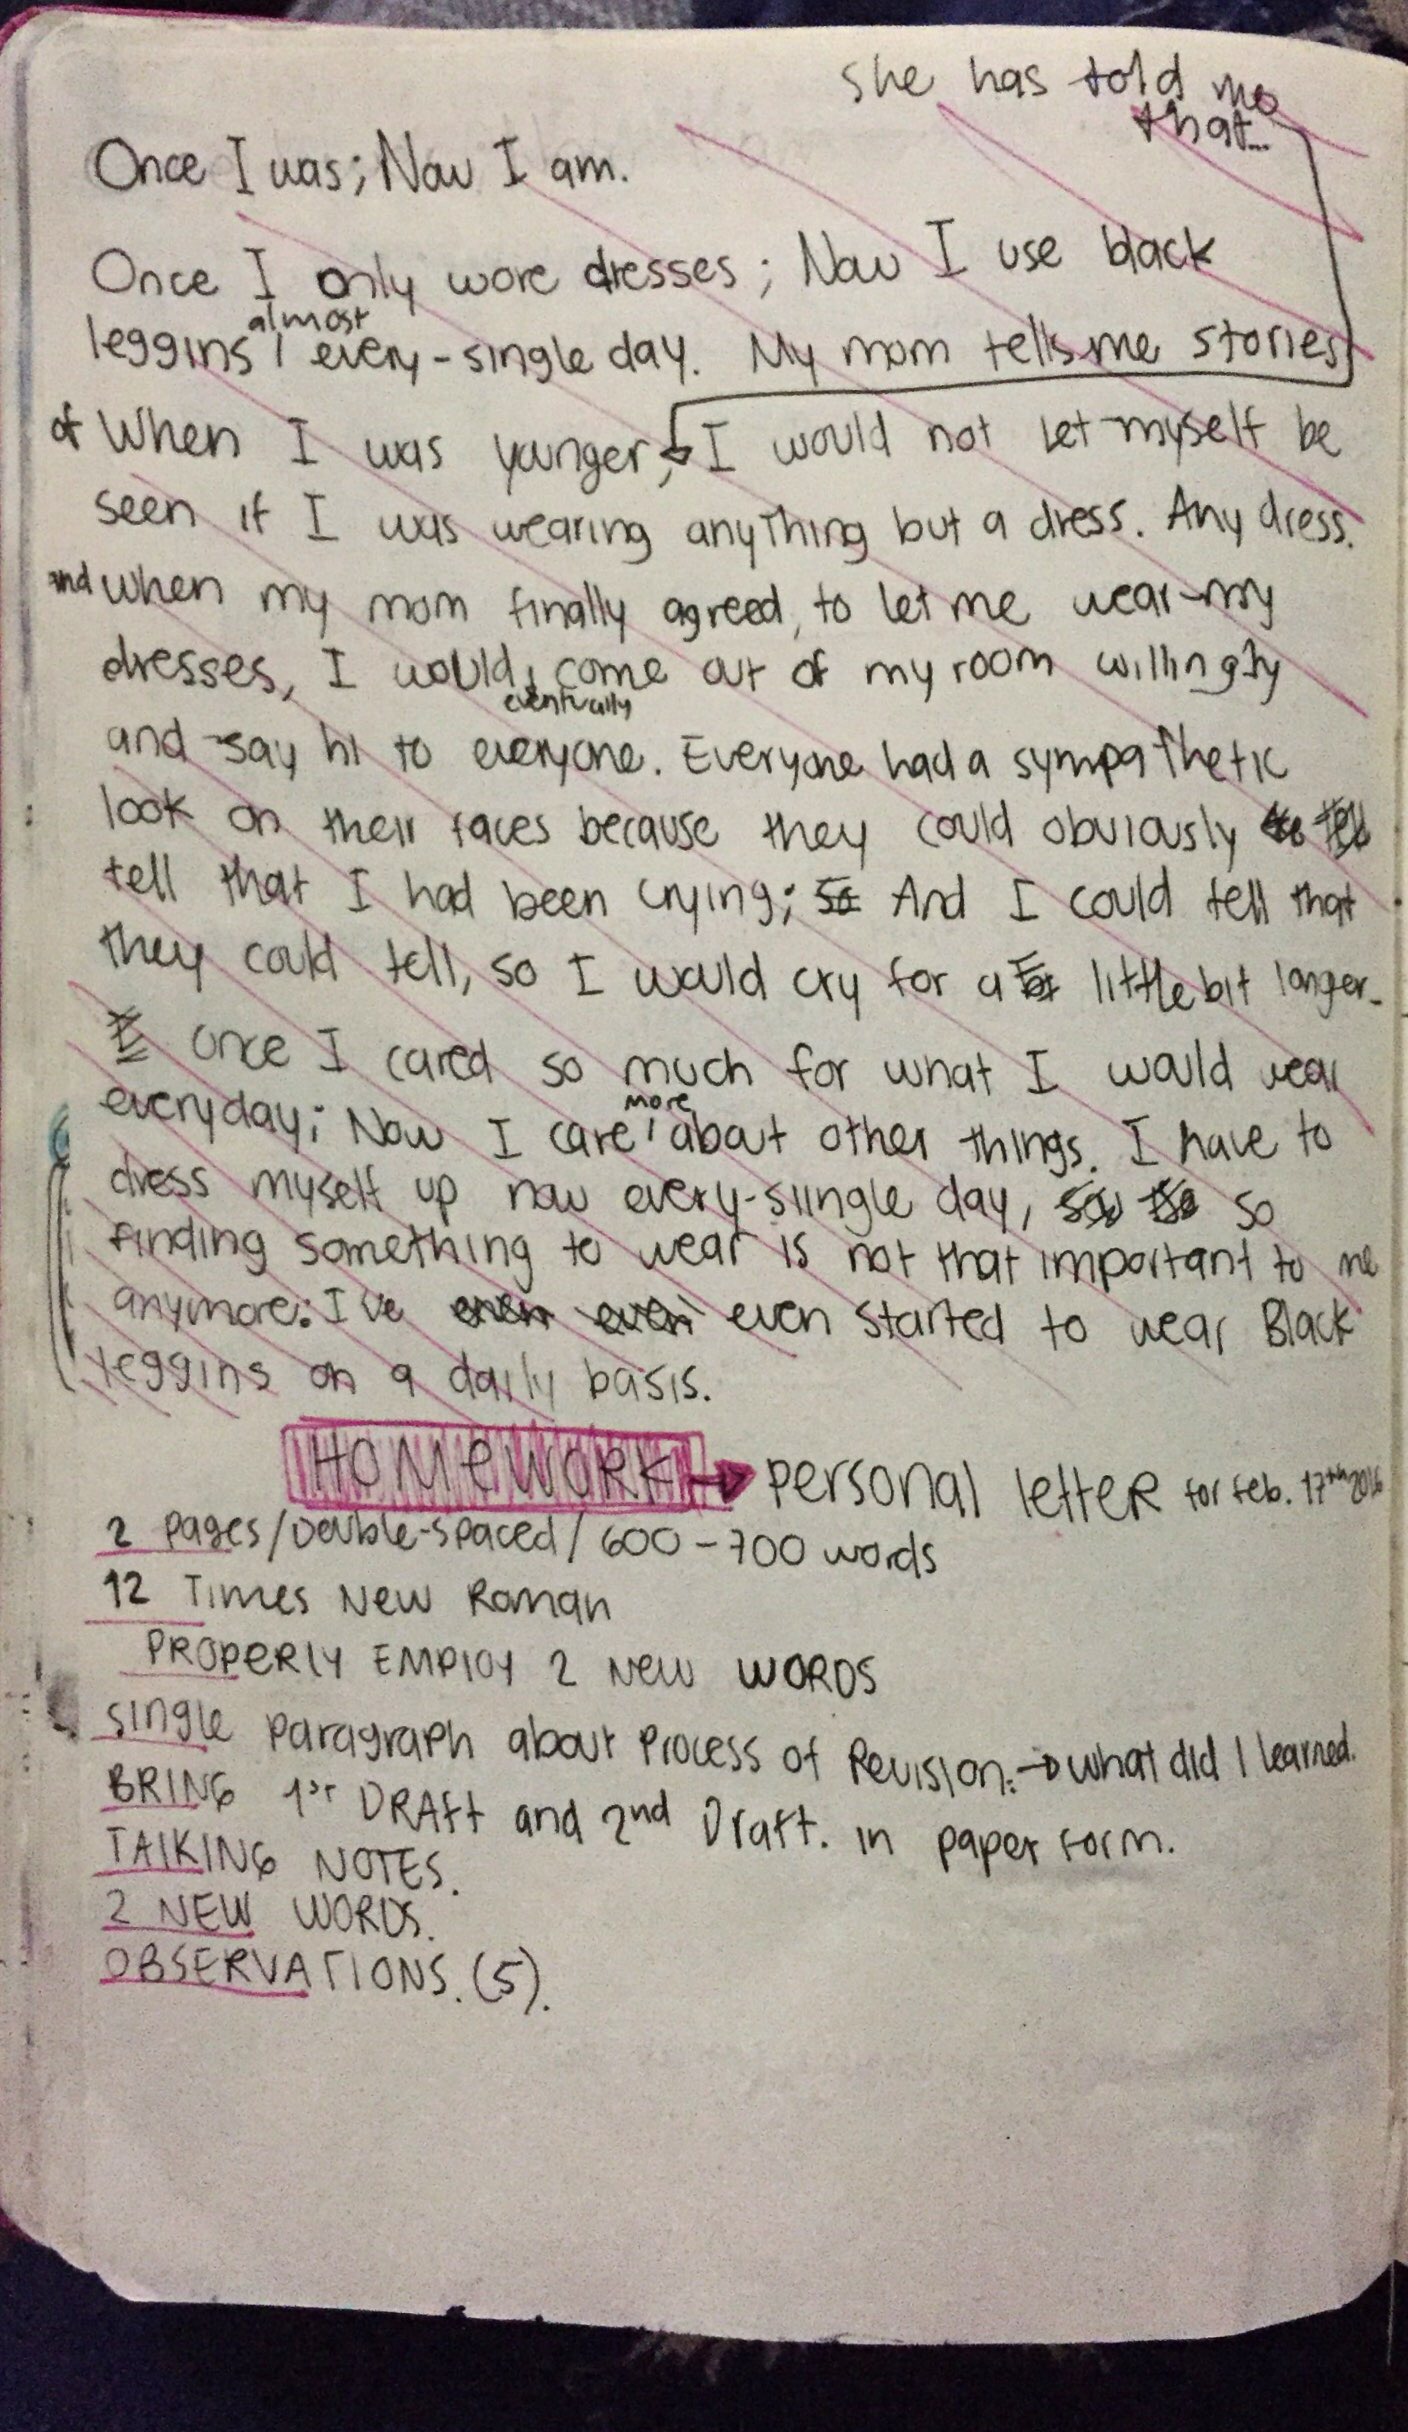 she has told me
that...
Once I was; Now I am.
Once I only wore dresses; Now I use black
almost
leggins every-single day. My mom tells me stories
of When I was younger, I would not let myself be
seen if I was wearing anything but a dress. Any dress.
and when my mom finally agreed, to let me wear my
dresses, I would come out of my room willingly
eventually
and say hi to everyone. Everyone had a sympathetic
look on their faces because they could obviously
tell that I had been crying; So And I could tell that
they could tell, so I would cry for a little bit longer.
Once I cared so much for what I would wear
more
everyday; Now I care about other things. I have to
dress myself up now every-siingle day, so
finding something to wear is not that important to me
anymore. I've even even even started to wear Black
leggins on a daily basis.
HOMEWORK → personal letteR for Feb. 17th 2016
2 pages/Double-spaced/600-700 words
12 Times New Roman
PROPERLY EMPLOY 2 New WORDS
single paragraph about Process of Revision: → what did I learned.
BRING 1st DRAft and 2nd Draft. in paper form.
TALKING NOTES.
2 NEW WORDS.
OBSERVATIONS. (5).